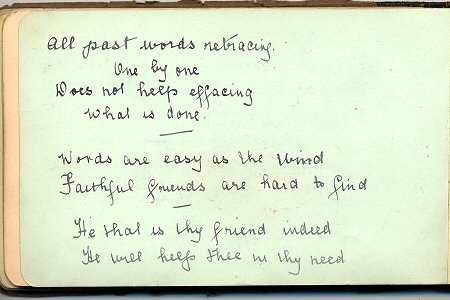 All past words retracing.
One by one
Does not help effacing
What is done.
Words are easy as the Wind
Faithful friends are hard to find
He that is thy friend indeed
He will help thee in thy need